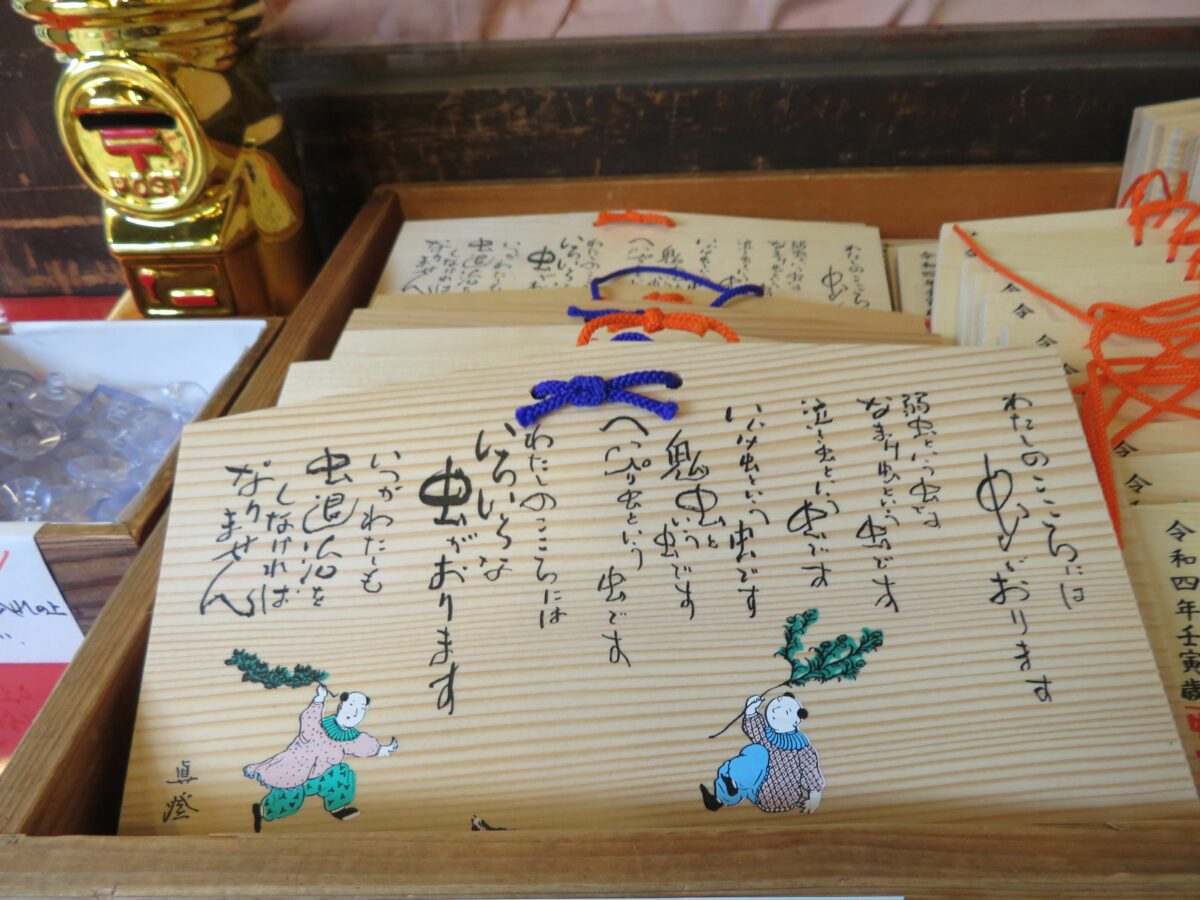 〒
POST
わたしのこころには
虫がおります
弱虫という虫です
なまけ虫という虫です
泣き虫という虫です
いじけ虫という虫です
鬼虫という虫です
へっぴり虫という虫です
わたしのこころには
いろいろな
虫がおります
いつかわたしも
虫退治を
しなければ
なりません
眞澄
令和四年壬寅歳
令
令
令
令
令